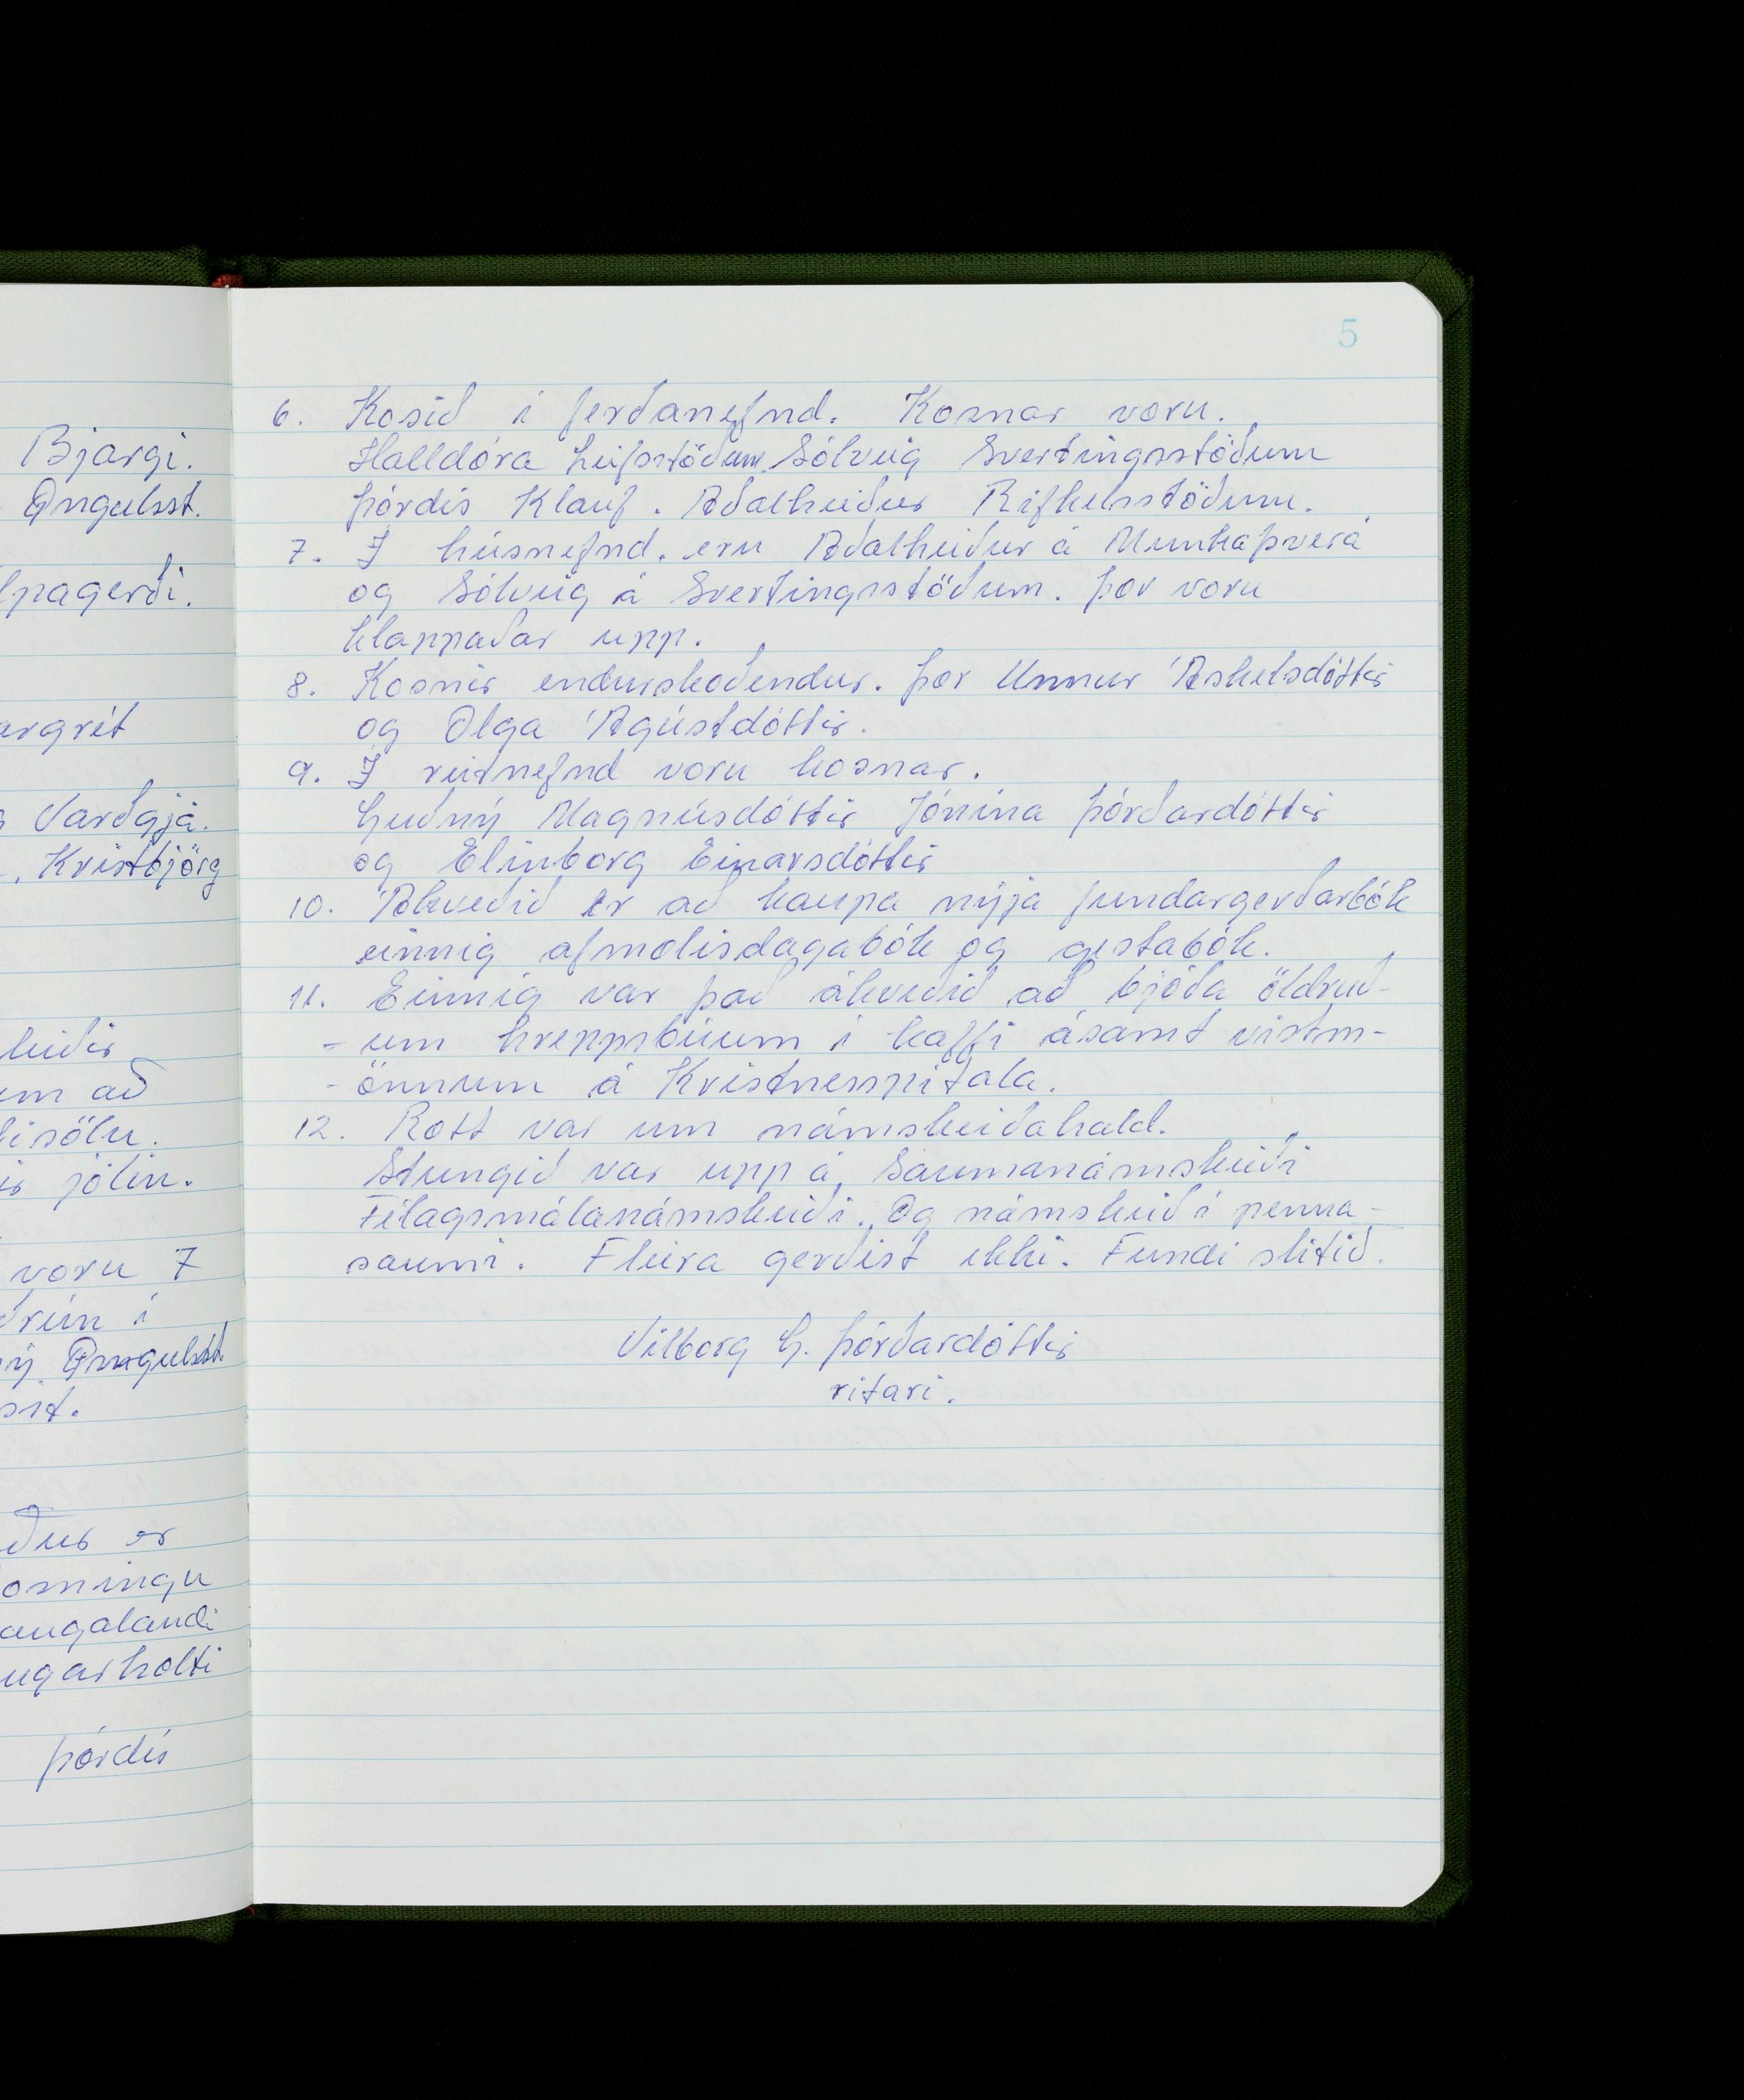 Bjargi.
Öngulsst.
argrét
Varðgjá.
Kristbjörg
um að
jólin.
voru 7
í
Öngulsst.
er
Þórdís
5
6. Kosið í ferðanefnd. Kosnar voru.
Halldóra Leifsstöðum. Sólveig Svertingsstöðum
Þórdís Klauf. Aðalheiður Rifkelsstöðum.
7. Í húsnefnd. eru Aðalheiður á Munkaþverá
og Sólveig á Svertingsstöðum. Þær voru
klappaðar upp.
8. Kosnir endurskoðendur. Þær Unnur Áskelsdóttir
og Olga Ágústdóttir.
9. Í reitnefnd voru kosnar.
Guðný Magnúsdóttir Jónína Þórðardóttir
og Elínborg Einarsdóttir
10. Ákveðið er að kaupa nýja fundargerðarbók
einnig afmælisdagabók og gestabók.
11. Einnig var það ákveðið að bjóða öldruð-
- um hreppsbúum í kaffi ásamt vistm-
- önnum á Kristnesspítala.
12. Rætt var um námskeiðahald.
Stungið var upp á, Saumanámskeiði
Félagsmálanámskeiði. Og námskeið í penna-
saumi. Fleira gerðist ekki. Fundi slitið.
Vilborg G. Þórðardóttir
ritari.